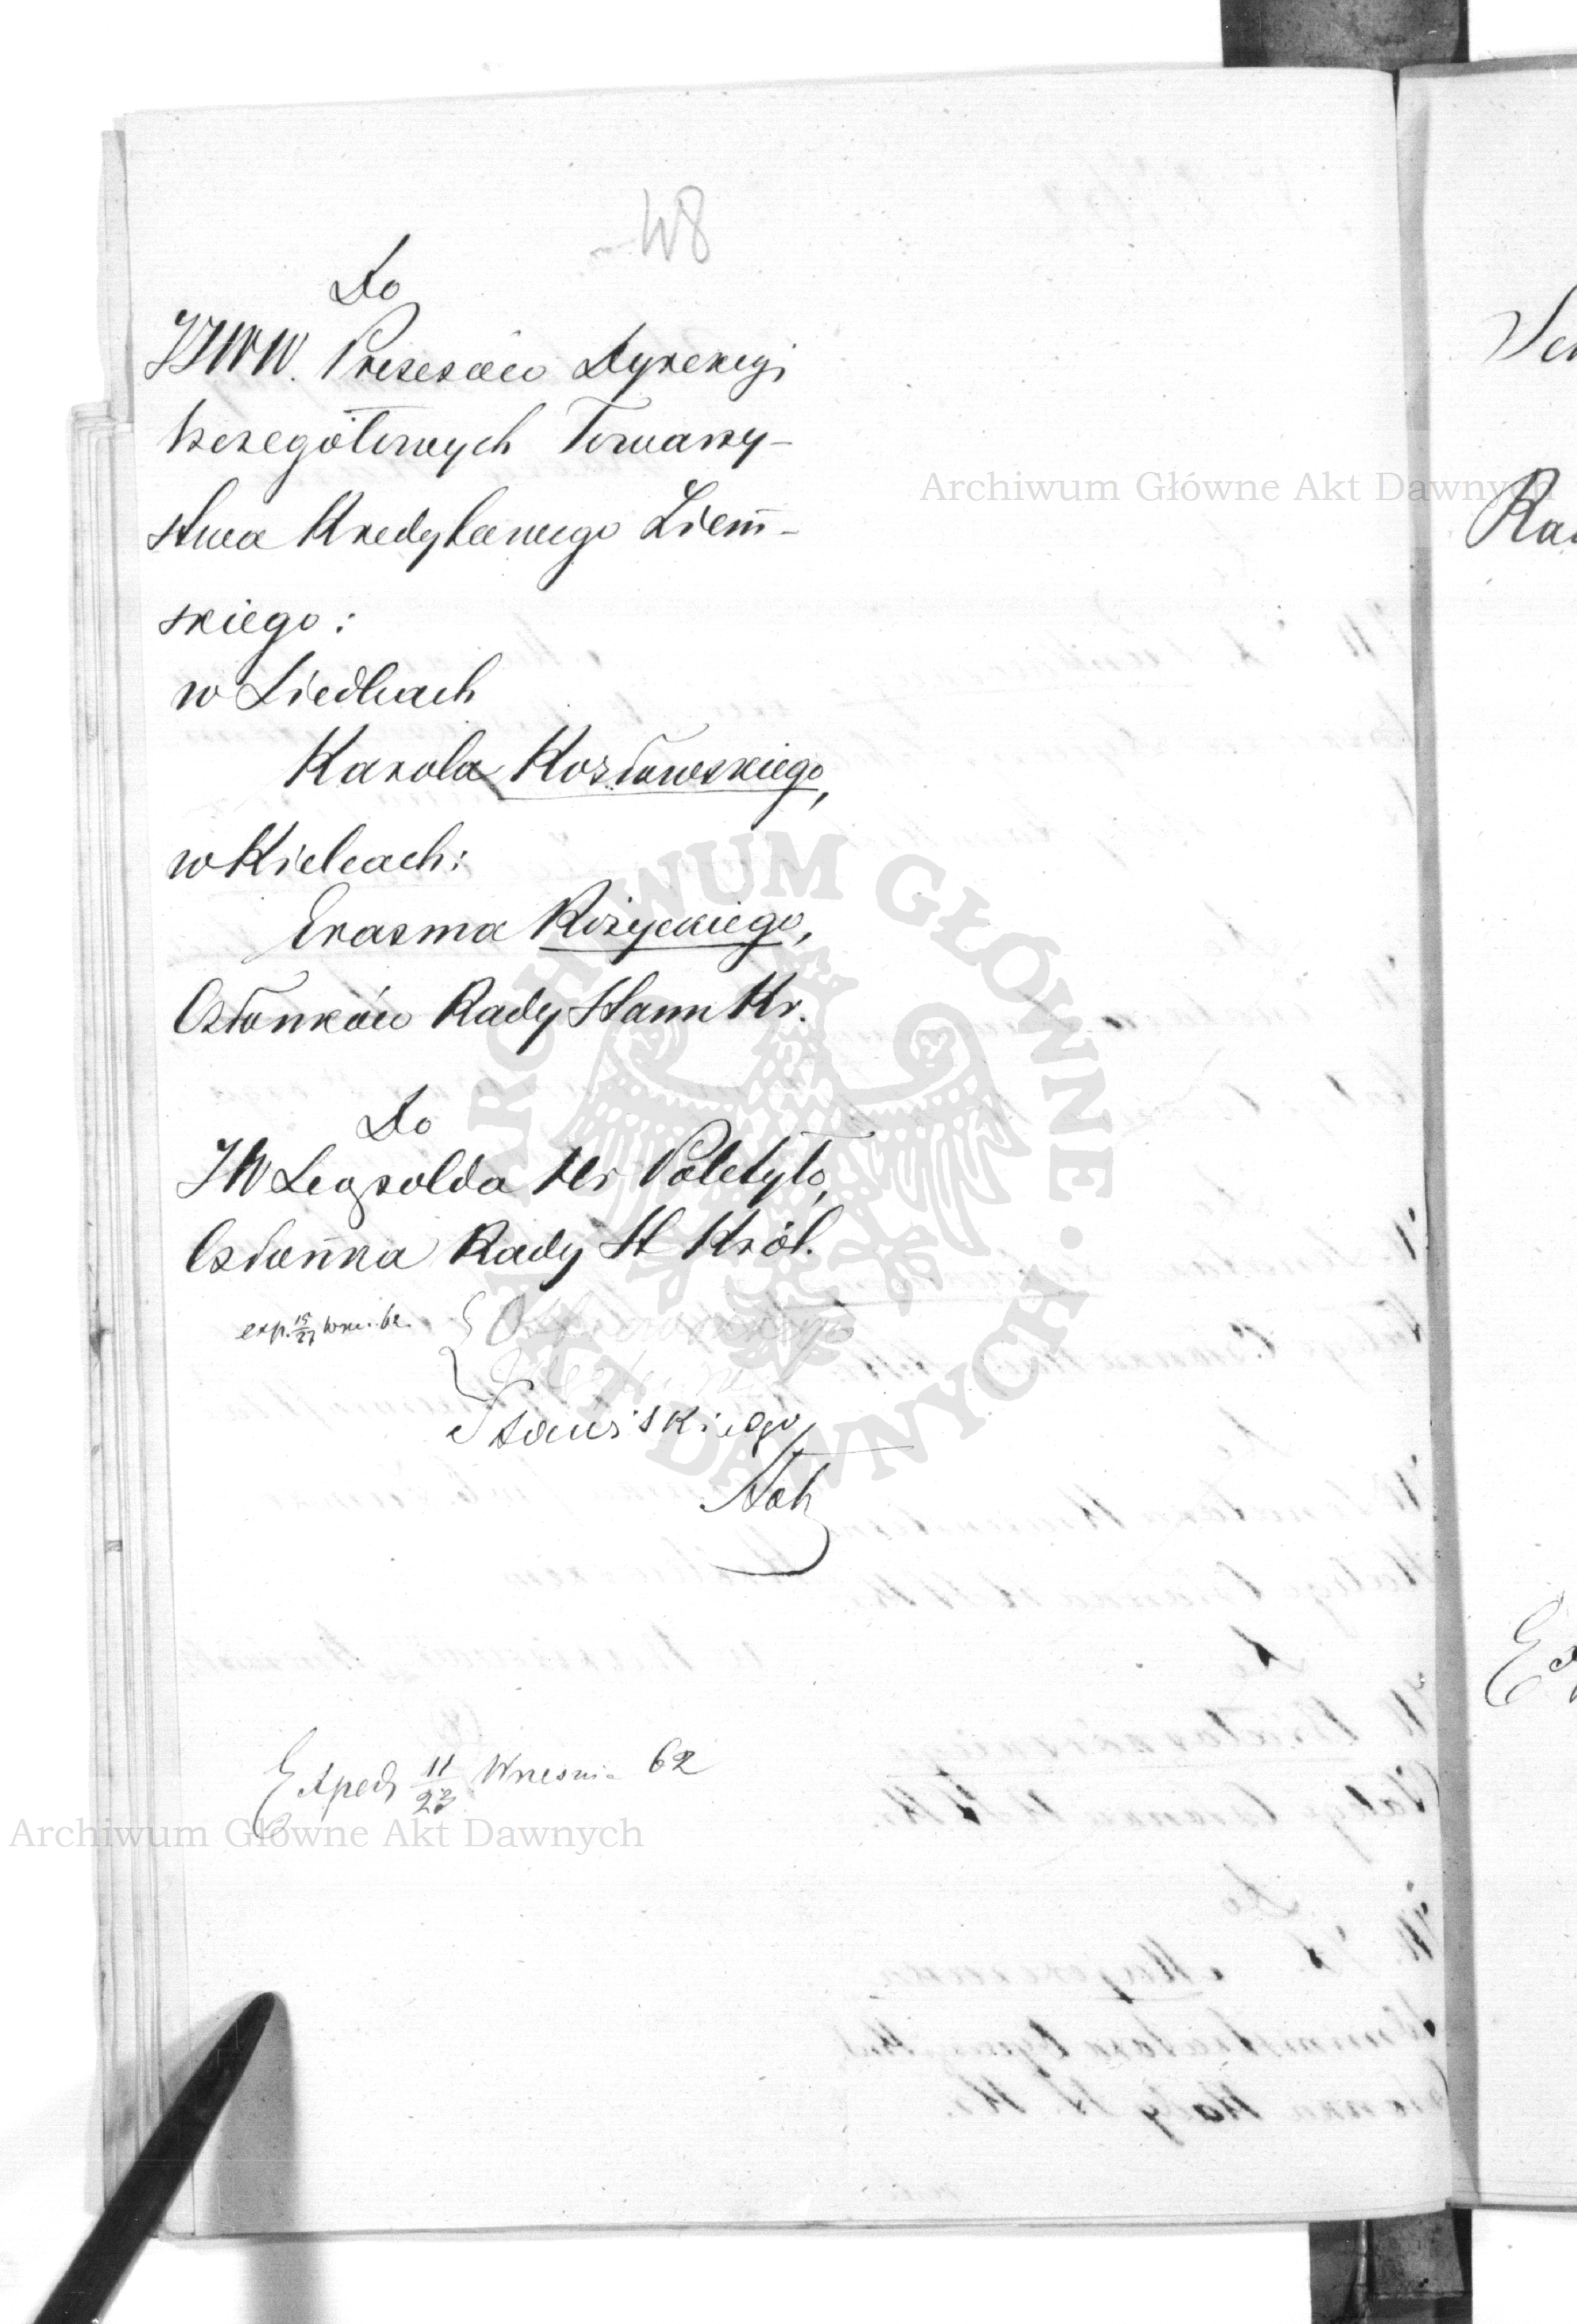 48
Do
JJWW. Prezesów Dyrekcyi
Szczegółowych Towarzy-
stwa Kredytowego Ziem-
skiego:
w Siedlcach
Karola Kozłowskiego,
w Kielcach:
Erazma Różyckiego,
Członków Rady Stanu Kr.
Do
JW Leopolda Hr Poletyło,
Członka Rady St Król.
exp. 15/27 Wrz. 62.
Stawiskiego
Exped 11/23 Wrzesnia 62
Archiwum Główne Akt Dawnych
Archiwum Główne Akt Dawnych
ARCHIWUM GŁÓWNE AKT DAWNYCH